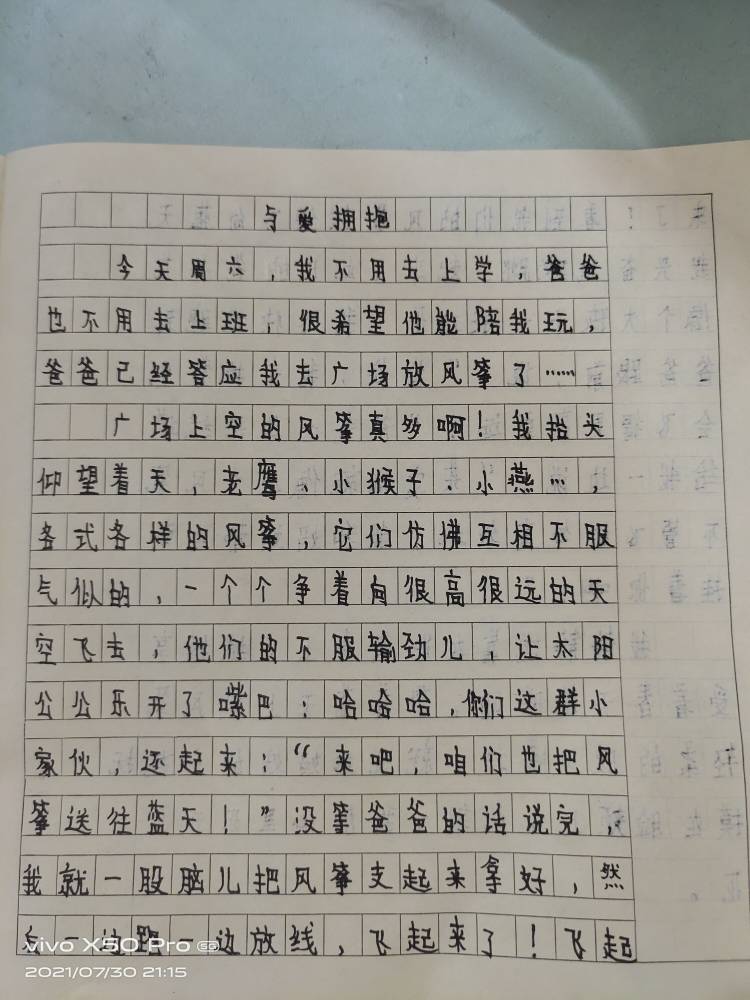 与爱拥抱
今天周六，我不用去上学，爸爸
也不用去上班，很希望他能陪我玩，
爸爸已经答应我去广场放风筝了……
广场上空的风筝真多啊！我抬头
仰望着天，老鹰、小猴子、小燕…，
各式各样的风筝，它们仿佛互相不服
气似的，一个个争着向很高很远的天
空飞去，他们的不服输劲儿，让太阳
公公乐开了嘴巴：哈哈哈，你们这群小
家伙，还起来：“来吧，咱们也把风
筝送往蓝天！”没等爸爸的话说完，
我就一股脑儿把风筝支起来拿好，然
后一边跑一边放线，飞起来了！飞起
vivo X50 Pro 5G
2021/07/30 21:15